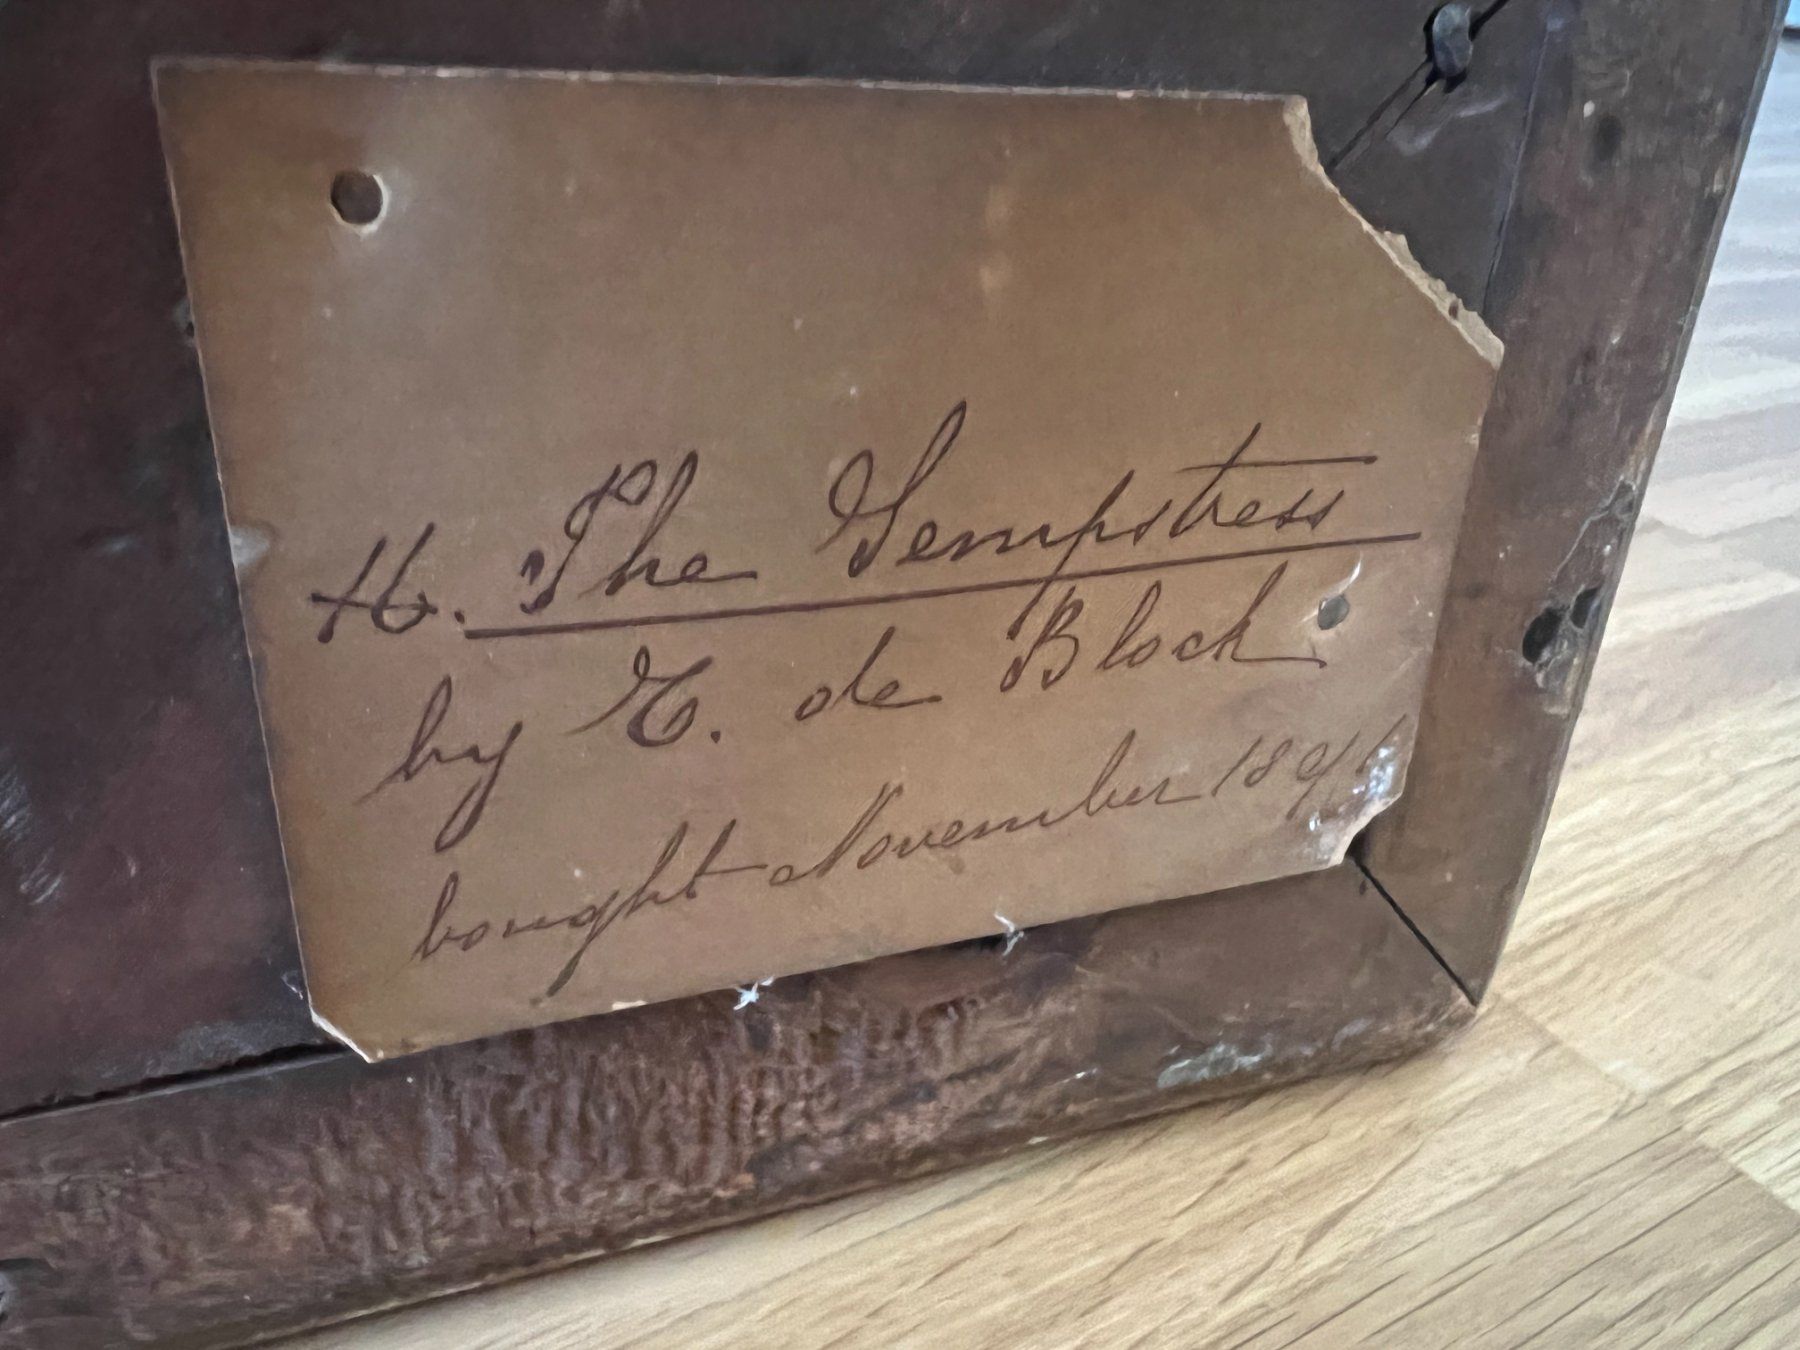 H. The Sempstress
by E. de Block
bought November 1891